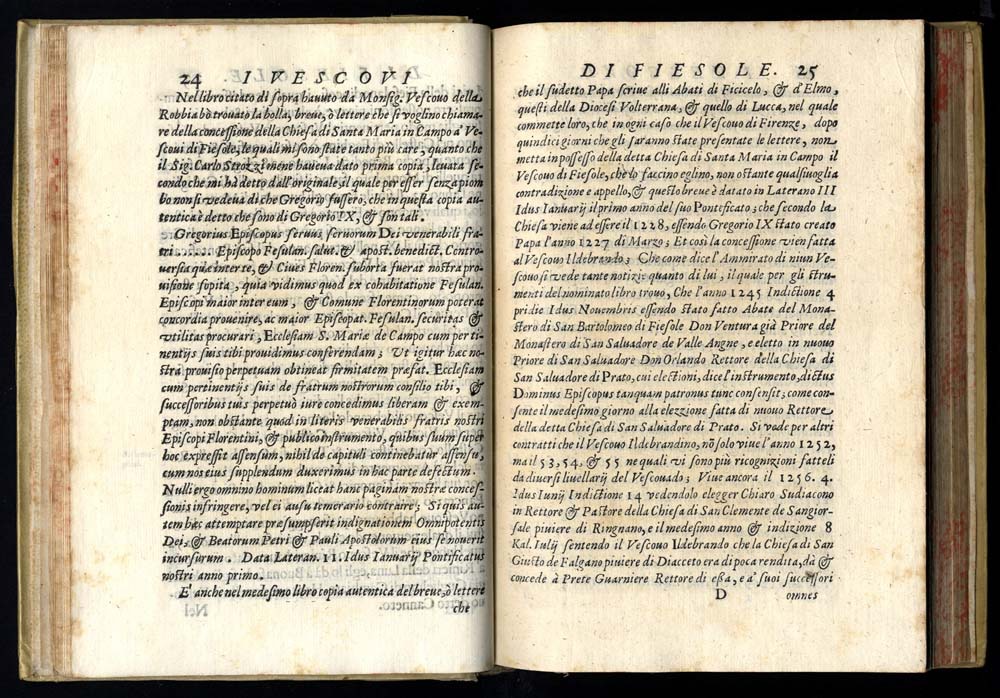 24 I VESCOVI
Nel libro citato di sopra hauuto da Monsig. Vescouo della
Robbia hò trouato la bolla, breue, ò lettere che si voglino chiama-
re della concessione della Chiesa di Santa Maria in Campo a' Ve-
scoui di Fiesole, le quali mi sono state tanto più care, quanto che
il Sig. Carlo Strozzi mene haueua dato prima copia, leuata se-
condo che mi hà detto dall'originale, il quale per esser senza piom
bo non si vedeua di che Gregorio fussero, che in questa copia au-
tentica è detto che sono di Gregorio IX, & son tali.
Gregorius Episcopus seruus seruorum Dei venerabili fra-
tri ...... Episcopo Fesulan. salut. & apost. benedict. Contro-
uersia quæ inter te, & Ciues Floren. suborta fuerat nostra pro-
uisione sopita, quia vidimus quod ex cohabitatione Fesulan.
Episcopi maior inter eum, & Comune Florentinorum poterat
concordia prouenire, ac maior Episcopat. Fesulan. securitas &
vtilitas procurari, Ecclesiam S. Mariæ de Campo cum perti-
nentijs suis tibi prouidimus conferendam; Vt igitur hæc no-
stra prouisio perpetuam obtineat firmitatem præfat. Ecclesiam
cum pertinentijs suis de fratrum nostrorum consilio tibi, &
successoribus tuis perpetuò iure concedimus liberam & exem-
ptam, non obstante quod in literis venerabilis fratris nostri
Episcopi Florentini, & publico instrumento, quibus suum super
hoc expressit assensum, nihil de capituli continebatur assensu,
cum nos eius supplendum duxerimus in hac parte defectum.
Nulli ergo omnino hominum liceat hanc paginam nostræ conces-
sionis infringere, vel ei ausu temerario contraire; Si quis au-
tem hæc attemptare presumpserit indignationem Omnipotentis
Dei, & Beatorum Petri & Pauli Apostolorum eius se nouerit
incursurum. Data Lateran. II. Idus Ianuarij Pontificatus
nostri anno primo.
E' anche nel medesimo libro copia autentica del breue, ò lettere
che
DI FIESOLE. 25
che il sudetto Papa scriue alli Abati di Ficicelo, & d'Elmo,
questi della Diocesi Volterrana, & quello di Lucca, nel quale
commette loro, che in ogni caso che il Vescouo di Firenze, dopo
quindici giorni che gli saranno state presentate le lettere, non
metta in possesso della detta Chiesa di Santa Maria in Campo il
Vescouo di Fiesole, che lo faccino eglino, non ostante qualsiuoglia
contradizione e appello, & questo breue è datato in Laterano III
Idus Ianuarij il primo anno del suo Pontificato; che secondo la
Chiesa viene ad essere il 1228, essendo Gregorio IX stato creato
Papa l'anno 1227 di Marzo; Et così la concessione vien fatta
al Vescouo Ildebrando; Che come dice l'Ammirato di niun Ve-
scouo si vede tante notizie quanto di lui, il quale per gli stru-
menti del nominato libro trouo, Che l'anno 1245 Indictione 4
pridie Idus Nouembris essendo stato fatto Abate del Mona-
stero di San Bartolomeo di Fiesole Don Ventura già Priore del
Monastero di San Saluadore de Valle Angne, e eletto in nuouo
Priore di San Saluadore Don Orlando Rettore della Chiesa di
San Saluadore di Prato, cui electioni, dice l'instrumento, dictus
Dominus Episcopus tanquam patronus tunc consensit; come con-
sente il medesimo giorno alla elezzione fatta di nuouo Rettore
della detta Chiesa di San Saluadore di Prato. Si vede per altri
contratti che il Vescouo Ildebrandino, nō solo viue l'anno 1252,
ma il 53, 54, & 55 ne quali vi sono più ricognizioni fatteli
da diuersi liuellarij del Vescouado; Viue ancora il 1256. 4.
Idus Iunij Indictione 14 vedendolo elegger Chiaro Sudiacono
in Rettore & Pastore della Chiesa di San Clemente de Sangior-
sale piuiere di Ringnano, e il medesimo anno & indizione 8
Kal. Iulij sentendo il Vescouo Ildebrando che la Chiesa di San
Giusto de Falgano piuiere di Diacceto era di poca rendita, dà &
concede à Prete Guarniere Rettore di essa, e a' suoi successori
D omnes